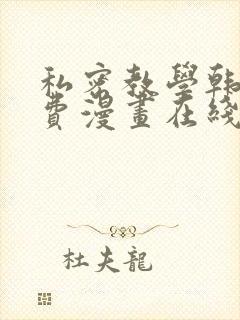 私密教學韩
費漫畫在綫
杜夫龍